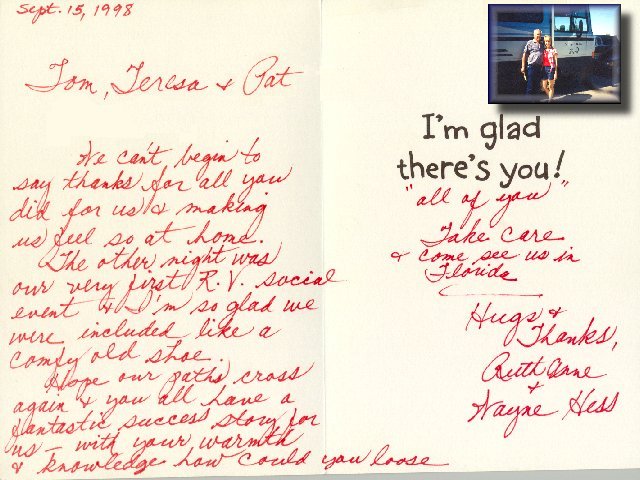 Sept. 15, 1998
Tom, Teresa & Pat
We can't begin to
say thanks for all you
did for us & making
us feel so at home.
The other night was
our very first R.V. social
event & I'm so glad we
were included like a
comfy old shoe.
Hope our paths cross
again & you all have a
fantastic success story for
us – with your warmth
& knowledge how could you loose
I'm glad
there's you!
"all of you"
Take care
& come see us in
Florida
Hugs &
Thanks,
Ruth Anne
&
Wayne Hess